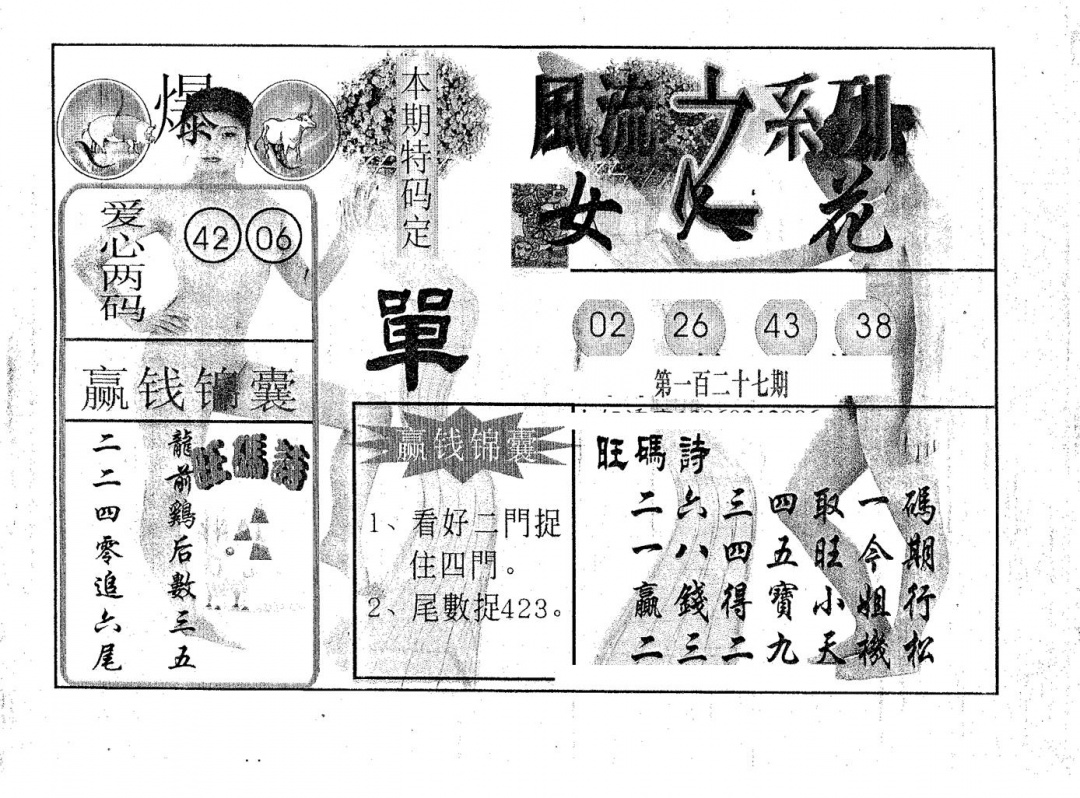 爆
爱心两码
42 06
赢钱锦囊
旺碼詩
龍前鷄后數三五
二二四零追六尾
本期特码定
單
赢钱锦囊
1、看好二門捉
住四門。
2、尾數捉423。
風流之系列
女人花
02 26 43 38
第一百二十七期
旺碼詩
二六三四取一碼
一八四五旺今期
贏錢得寶小姐行
二三二九天機松